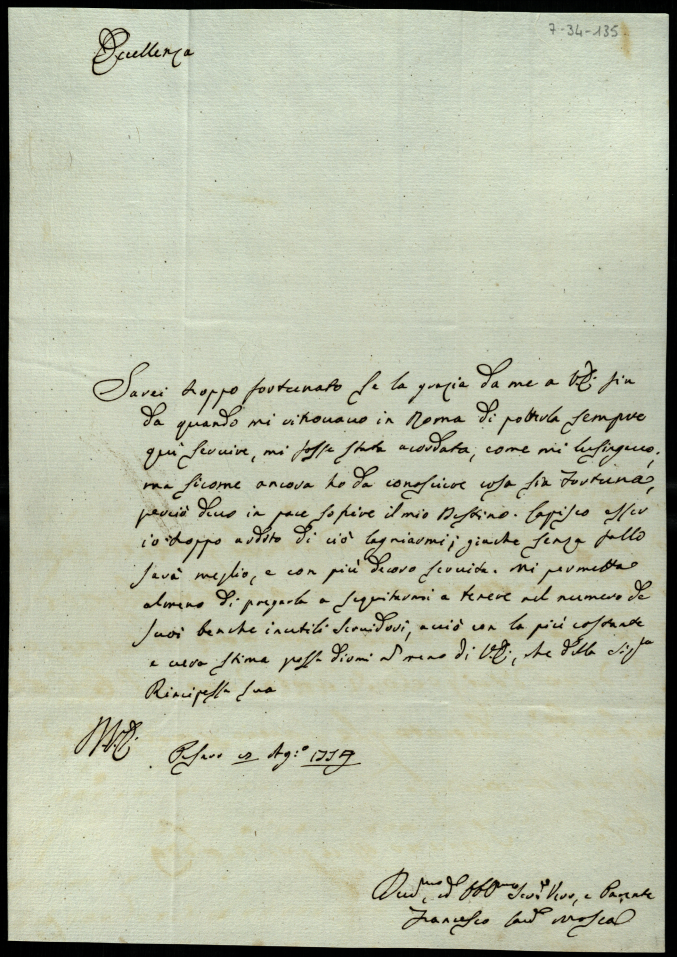 7-34-135
Eccellenza
Sarei troppo fortunato se la grazia da me a V.E. fin
da quando mi ritrovavo in Roma di potterla sempre
quì servire, mi fosse stata acordata, come mi lusingavo,
ma sicome ancora ho da conoscere cosa sia Fortuna,
perciò devo in pace sofrire il mio Destino. Capisco esser
io troppo ardito di ciò lagniarmi, giache senza fallo
sarà meglio, e con più decoro servita. Mi permetta
almeno di pregarla a seguitarmi a tenere nel numero de
suoi benche inutili Servidori, acciò con la più costante
e vera stima possa dirmi non meno di V.E., che della Sig.ra
Principessa sua
Pesaro Ag.o
Div.mo ed Obb.mo Ser.e Vero, e Parente
Francesco Mosca